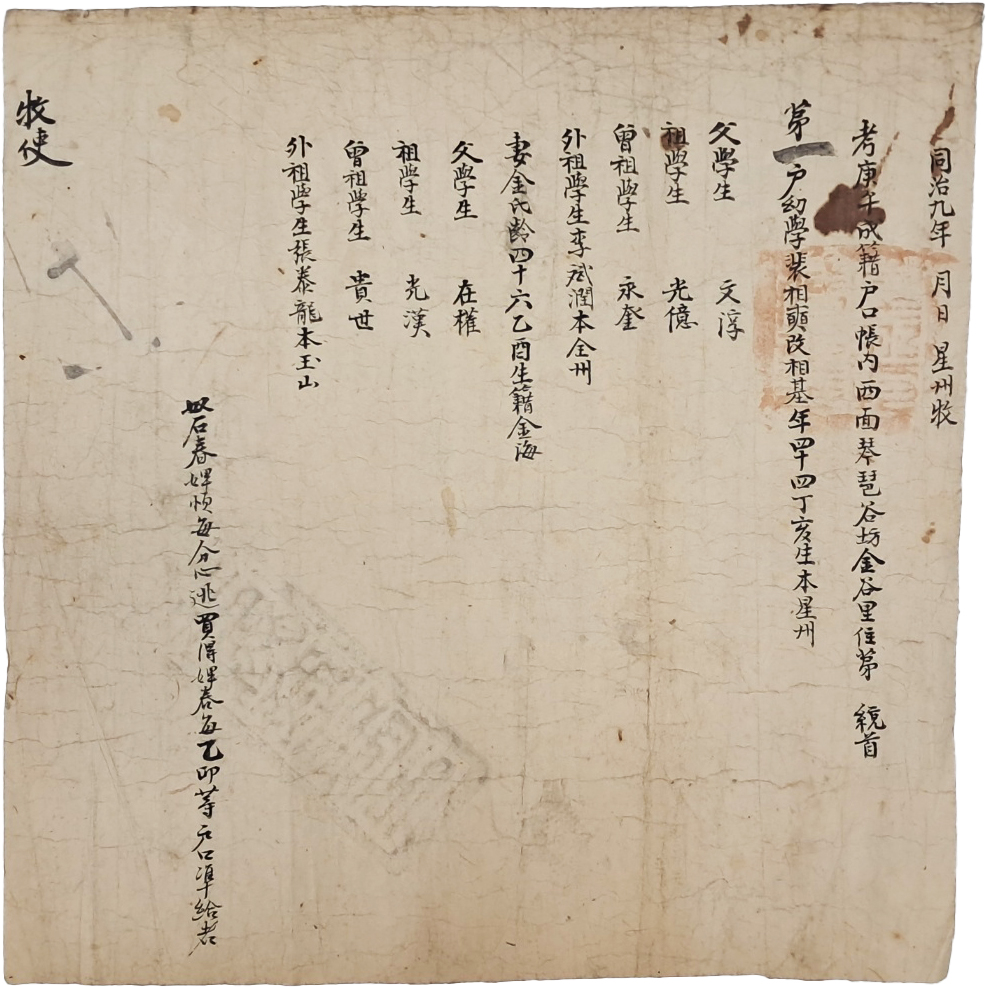 同治九年 月 日 星州牧
考庚午成籍戶口帳內西面琴琶谷坊金谷里住第 統首
第一戶幼學裴相奭改相基年四十四丁亥生本星州
父學生 文淳
祖學生 光億
曾祖學生 永奎
外祖學生李斌潤本全州
妻金氏齡四十六乙酉生籍金海
父學生 在權
祖學生 光漢
曾祖學生 貴世
外祖學生張泰龍本玉山
奴石春婢順每分心逃買得婢春每乙卯等戶口準給者
牧使